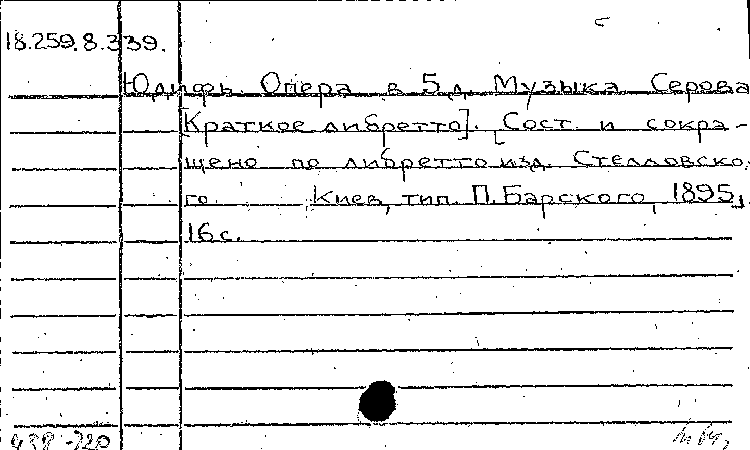 18.259.8.339.
Юдифь. Опера в 5 д. Музыка Серова
[Краткое либретто]. Сост. и сокра-
щено по либретто изд. Стелловско
го. Киев, тип. П. Барского, 1895,
16 с.
438-220